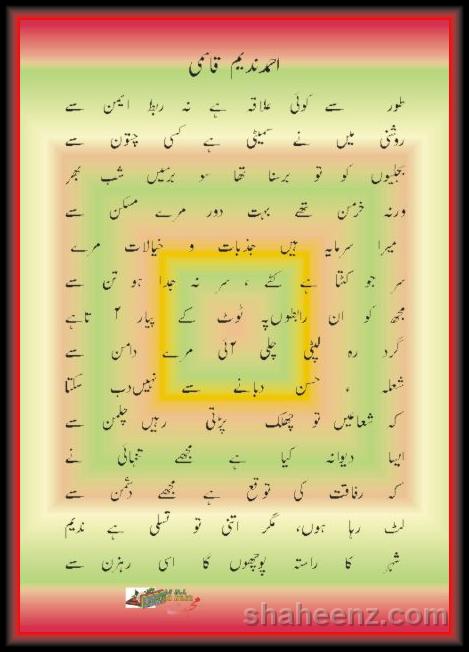 احمد ندیم قاسمی
طور سے کوئی علاقہ ہے نہ ربط ایمن سے
روشنی میں نے سمیٹی ہے کسی چتون سے
بجلیوں کو تو برسنا تھا سو برسیں شب بھر
ورنہ خرمن تھے بہت دور مرے مسکن سے
میرا سرمایہ ہیں جذبات و خیالات مرے
سر جو کٹتا ہے کٹے ، سر نہ جدا ہو تن سے
مجھ کو ان رابطوں پہ ٹوٹ کے پیار آتا ہے
گرد رہ لپٹی چلی آئی مرے دامن سے
شعلہ ء حسن دبانے سے نہیں دب سکتا
کہ شعاعیں تو چھلک پڑتی رہیں چلمن سے
ایسا دیوانہ کیا ہے مجھے تنہائی نے
کہ رفاقت کی توقع ہے مجھے دشمن سے
لٹ رہا ہوں، مگر اتنی تو تسلی ہے ندیم
شہر کا راستہ پوچھوں گا اسی رہزن سے
shaheenz.com